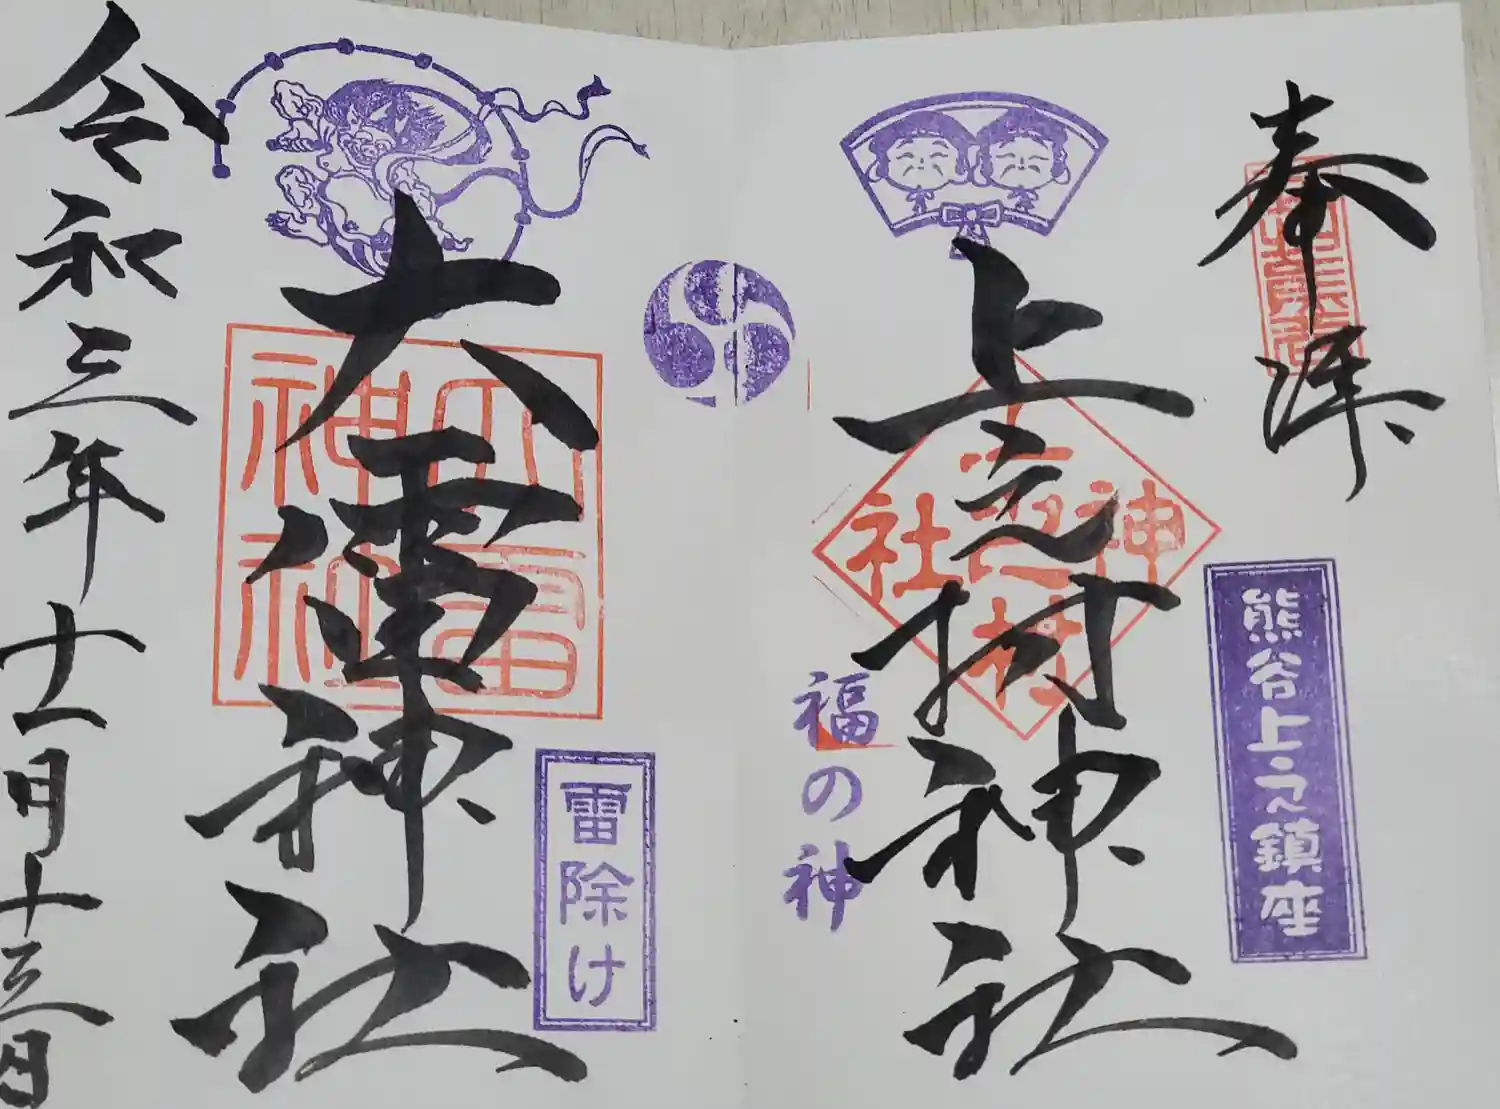 奉拝
熊谷上之鎮座
上之村神社
上之村神社
福の神
大雷神社
大雷神社
雷除け
令和三年十一月十三日